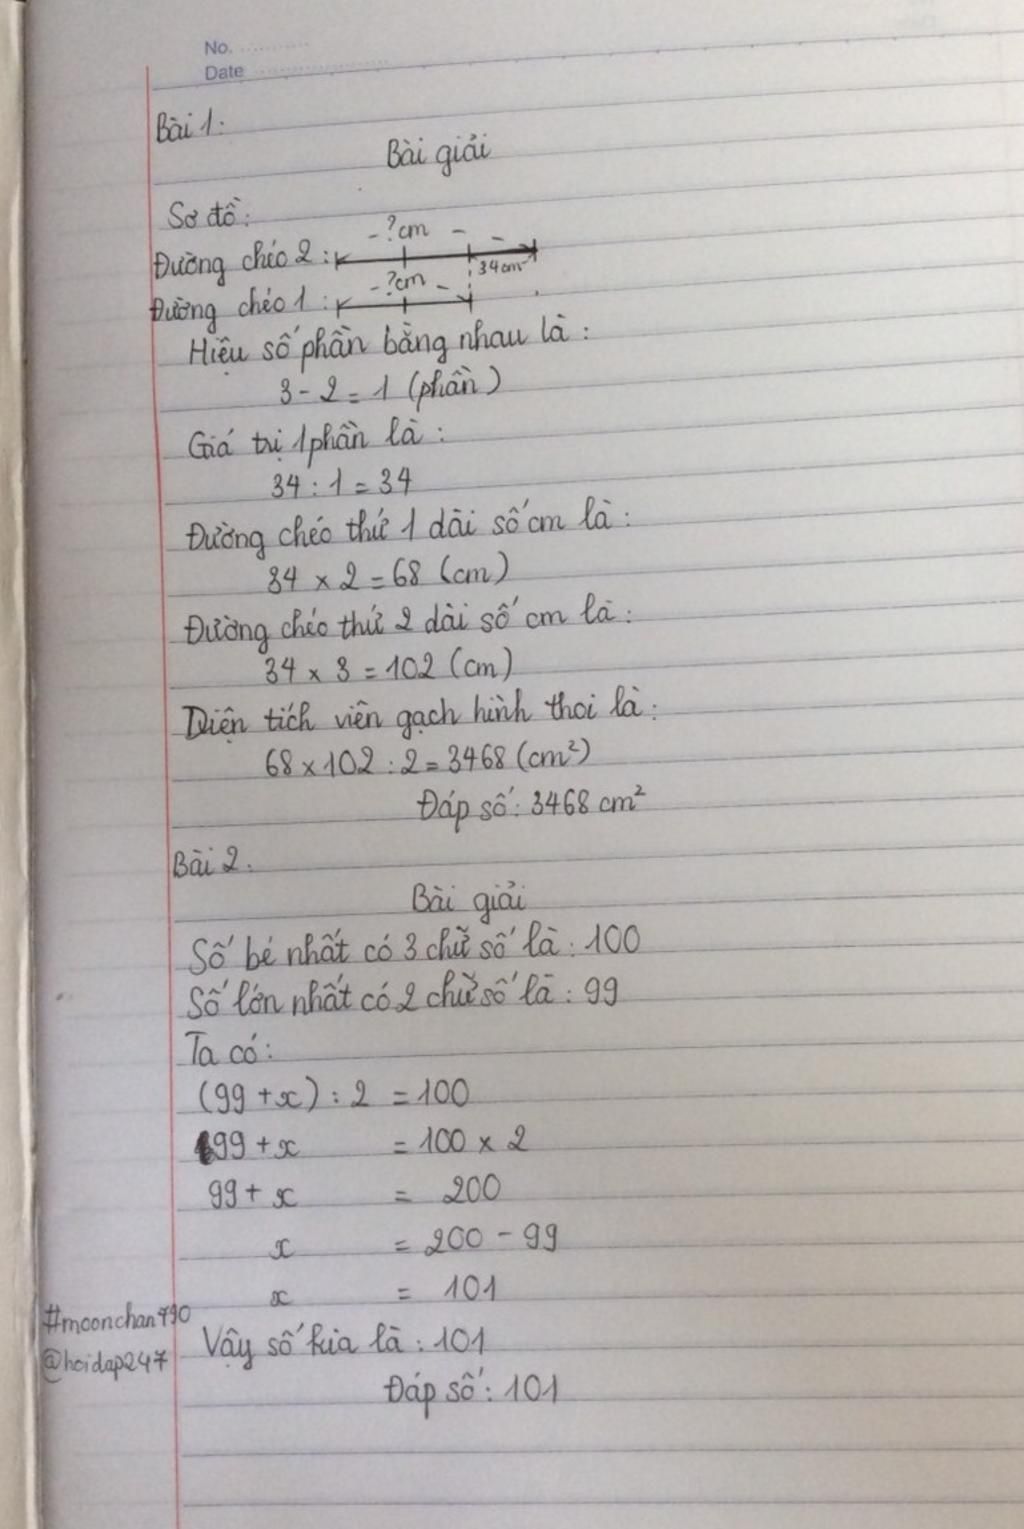 No.
Date
Bài 1:
Bài giải
Sơ đồ:
?cm
Đường chéo 2:
34cm
?cm
Đường chéo 1:
Hiệu số phần bằng nhau là:
3 - 2 = 1 (phần)
Giá trị 1 phần là:
34 : 1 = 34
Đường chéo thứ 1 dài số cm là:
34 x 2 = 68 (cm)
Đường chéo thứ 2 dài số cm là:
34 x 3 = 102 (cm)
Diện tích viên gạch hình thoi là:
68 x 102 : 2 = 3468 (cm²)
Đáp số: 3468 cm²
Bài 2.
Bài giải
Số bé nhất có 3 chữ số là: 100
Số lớn nhất có 2 chữ số là: 99
Ta có:
(99 + x) : 2 = 100
99 + x = 100 x 2
99 + x = 200
x = 200 - 99
x = 101
#moonchan790
Vậy số kia là: 101
@hoidap247
Đáp số: 101